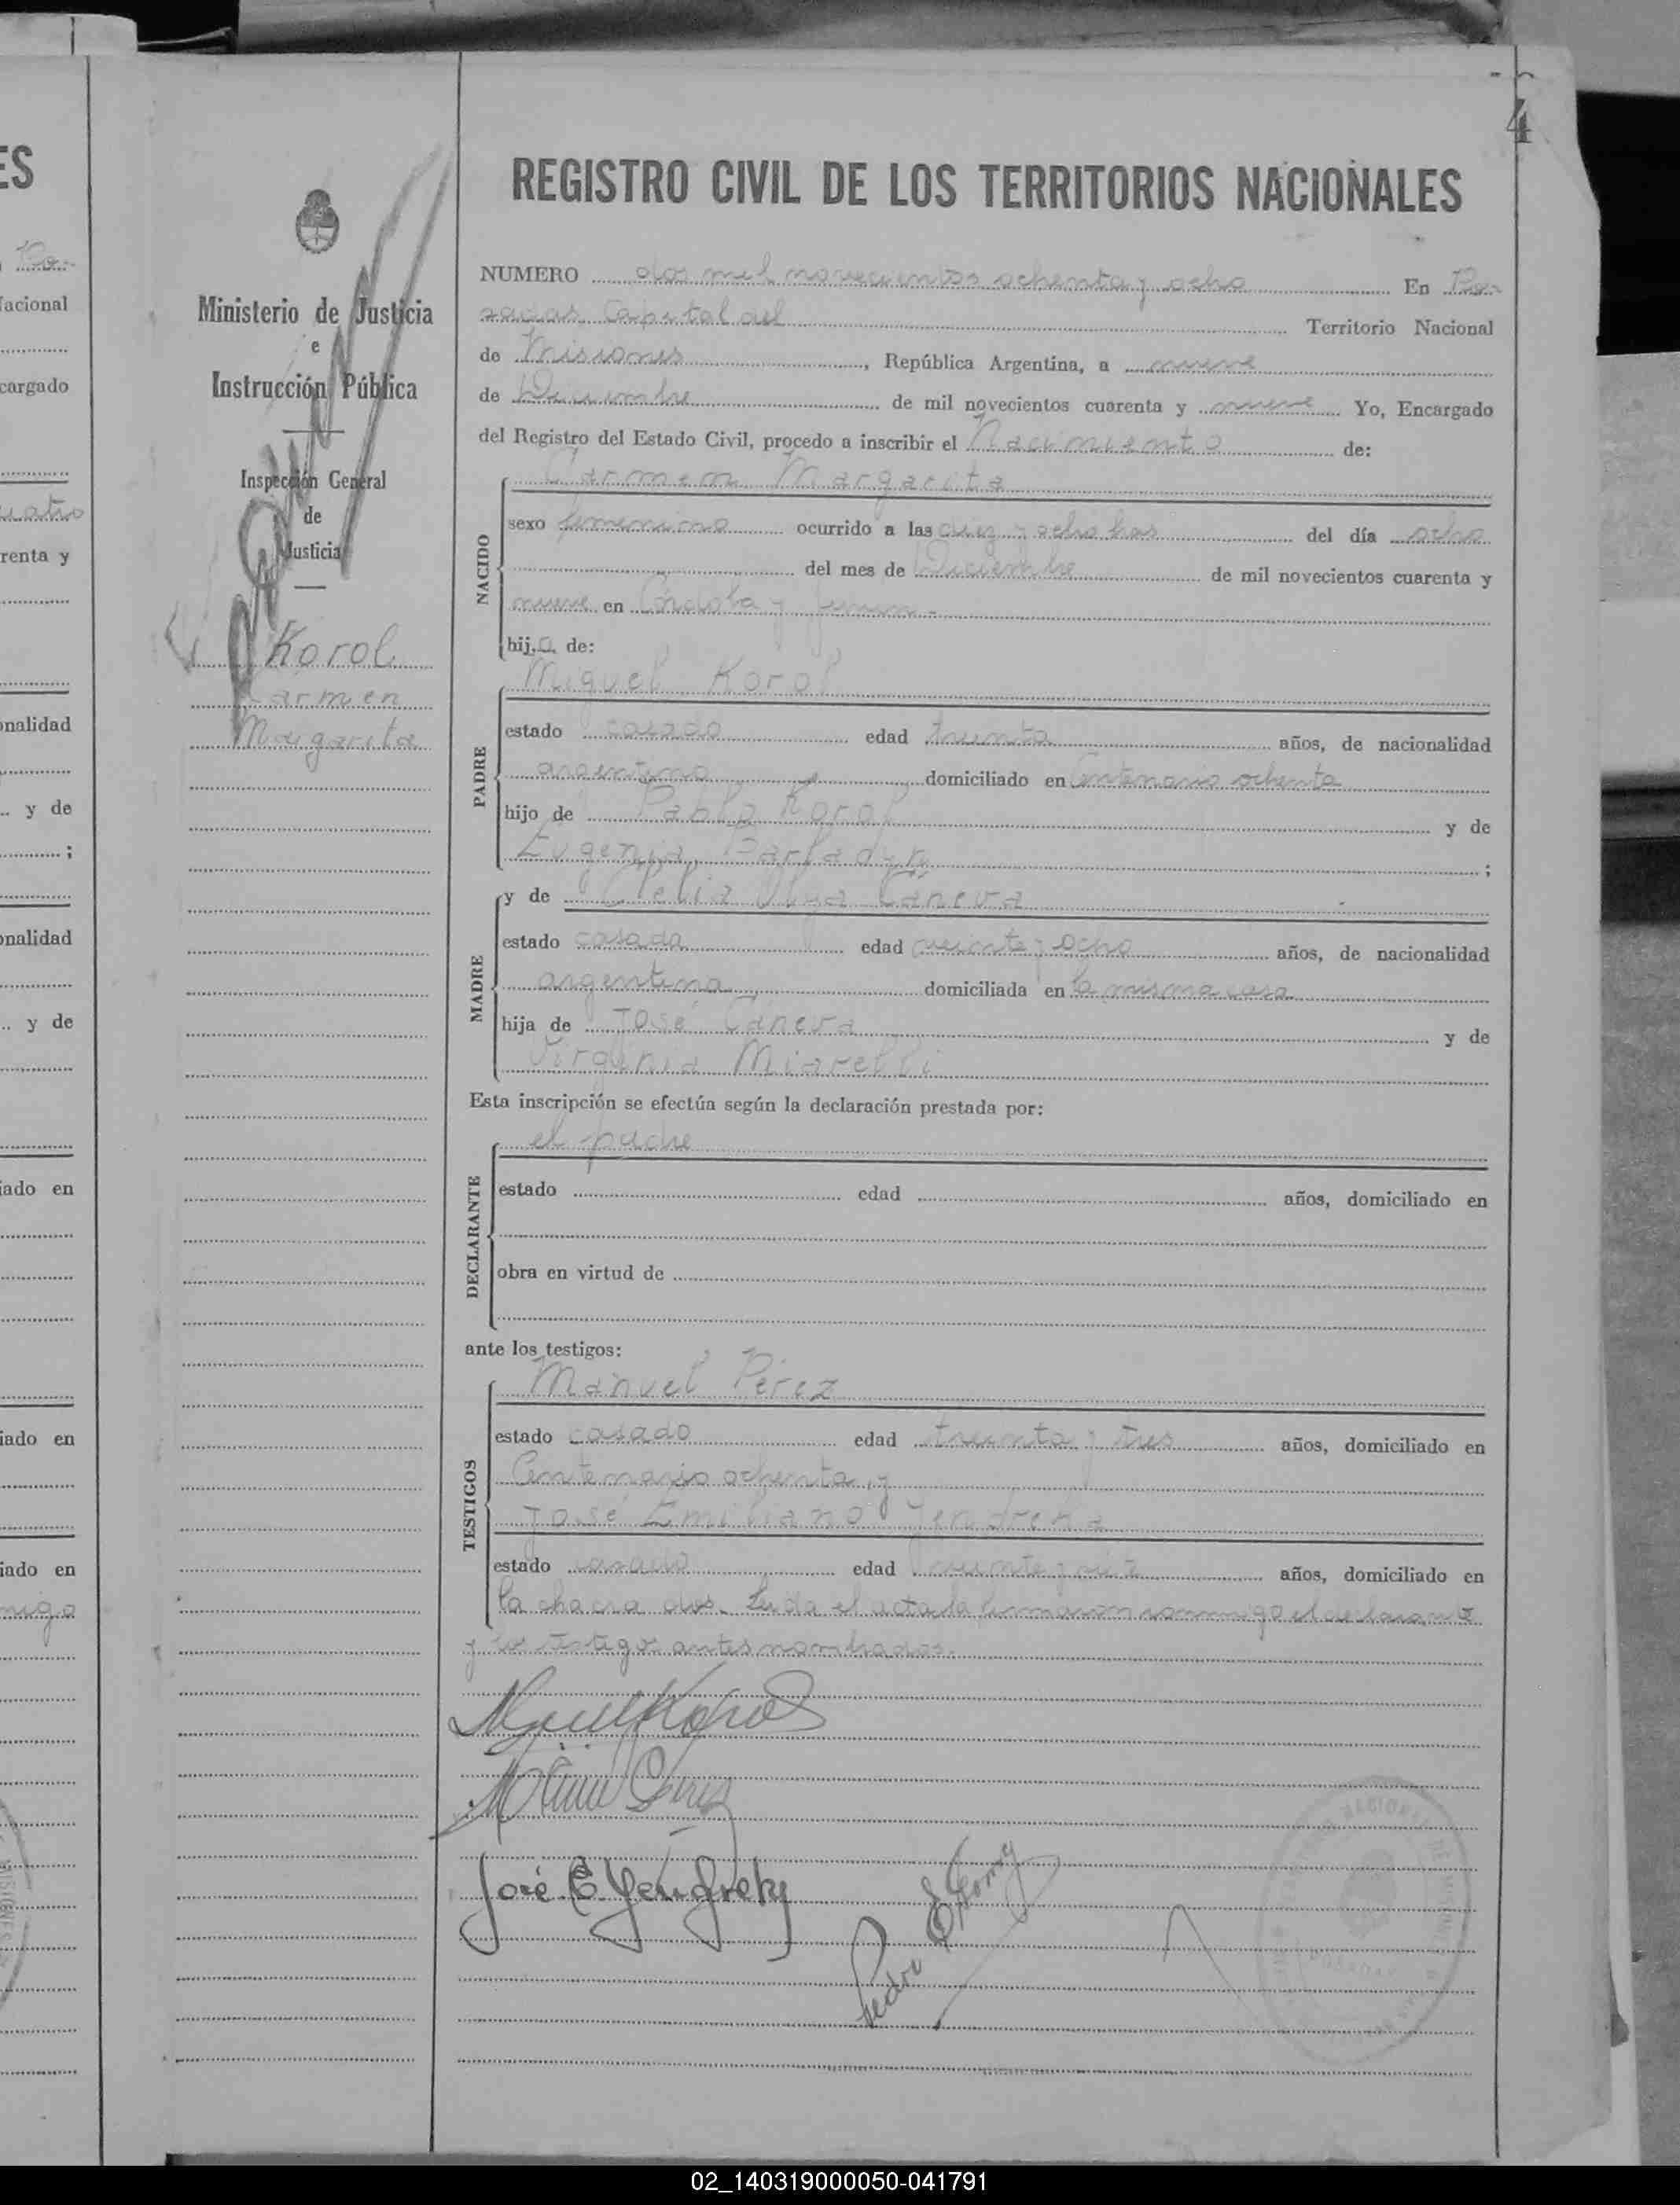 4
REGISTRO CIVIL DE LOS TERRITORIOS NACIONALES
Ministerio de Justicia
e
Instrucción Pública
Inspección General
de
Justicia
Korol
Carmen
Margarita
NUMERO dos mil novecientos ochenta y ocho En Po-
sadas Capital del Territorio Nacional
de Misiones, República Argentina, a nueve
de Diciembre de mil novecientos cuarenta y nueve Yo, Encargado
del Registro del Estado Civil, procedo a inscribir el Nacimiento de:
NACIDO
Carmen Margarita
sexo femenino ocurrido a las diez y ocho hras del día ocho
del mes de Diciembre de mil novecientos cuarenta y
nueve en Córdoba y Junin.
hija de:
PADRE
Miguel Korol
estado casado edad treinta años, de nacionalidad
argentino domiciliado en Centenario ochenta
hijo de Pablo Korol y de
Eugenia ;
MADRE
y de Clelia Olga Cáneva
estado casada edad veinte y ocho años, de nacionalidad
argentina domiciliada en la misma casa
hija de José Cáneva y de
Virginia Miarelli
Esta inscripción se efectúa según la declaración prestada por:
DECLARANTE
el padre
estado edad años, domiciliado en
obra en virtud de
ante los testigos:
TESTIGOS
Manuel Pérez
estado casado edad treinta y tres años, domiciliado en
Centenario ochenta, y
José Emiliano
estado casado edad años, domiciliado en
la chacra dos. Leida el acta la firmaron conmigo el declarante
y los testigos antes nombrados.
Miguel Korol
José E.
Pedro
ES
Po-
Nacional
cargado
cuatro
renta y
onalidad
y de
;
onalidad
y de
iado en
iado en
iado en
migo
MISIONES
POSADAS
02_140319000050-041791